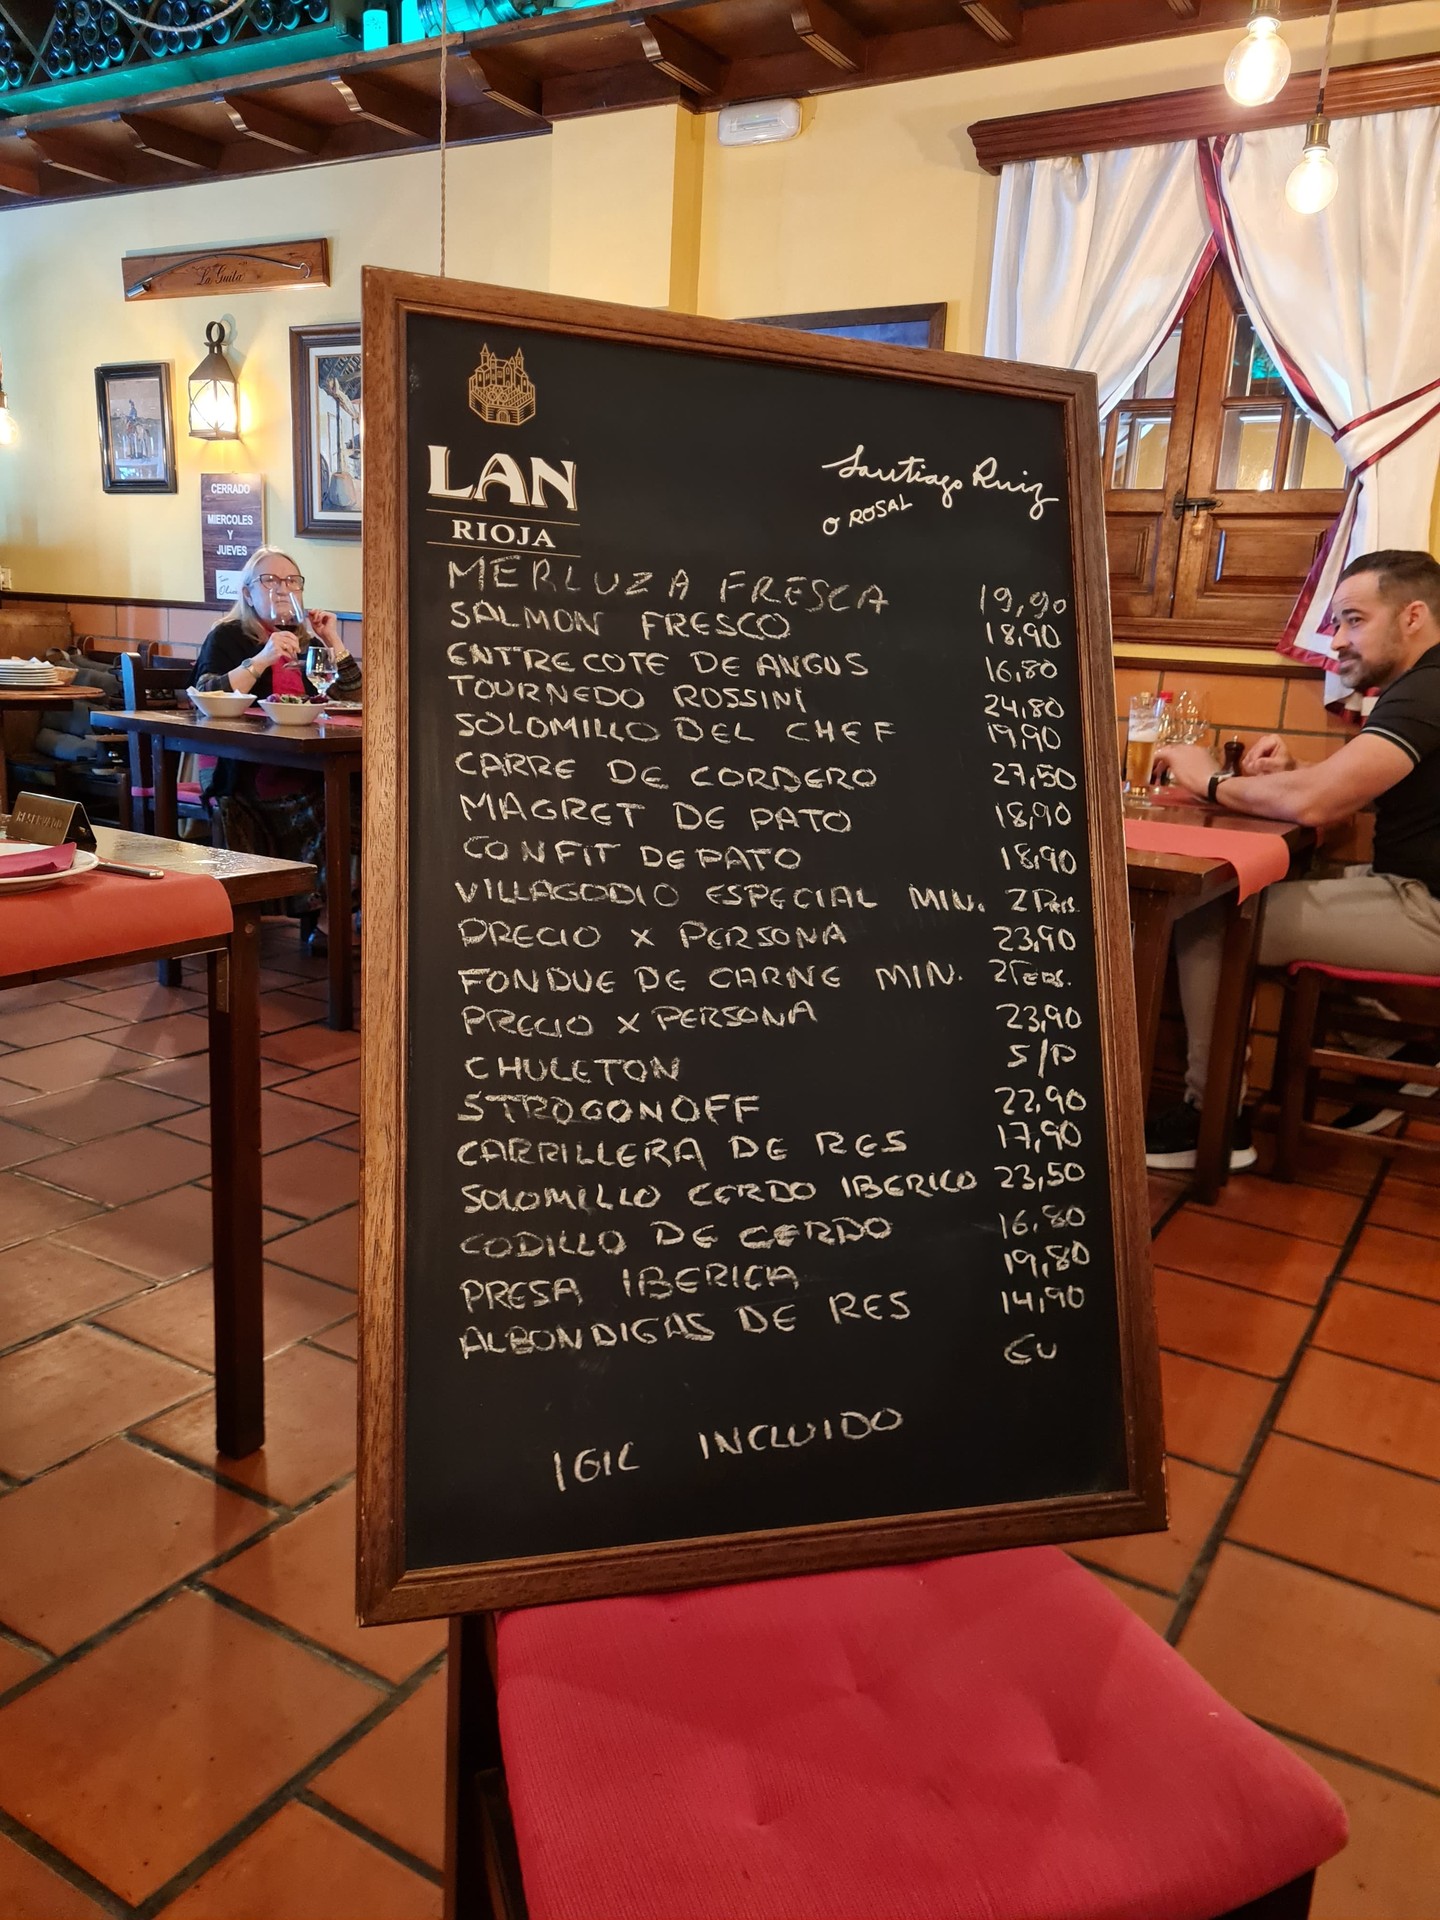 "La Guita"
CERRADO
MIERCOLES
Y
JUEVES
RESERVADO
LAN
RIOJA
Santiago Ruiz
O ROSAL
MERLUZA FRESCA 19,90
SALMON FRESCO 18,90
ENTRECOTE DE ANGUS 16,80
TOURNEDO ROSSINI 24,80
SOLOMILLO DEL CHEF 19,90
CARRE DE CORDERO 27,50
MAGRET DE PATO 18,90
CONFIT DE PATO 18,90
VILLAGODIO ESPECIAL MIN. 2 Pers.
PRECIO X PERSONA 23,90
FONDUE DE CARNE MIN. 2 Pers.
PRECIO X PERSONA 23,90
CHULETON S/P
STROGONOFF 22,90
CARRILLERA DE RES 17,90
SOLOMILLO CERDO IBERICO 23,50
CODILLO DE CERDO 16,80
PRESA IBERICA 19,80
ALBONDIGAS DE RES 14,90
EU
IGIC INCLUIDO